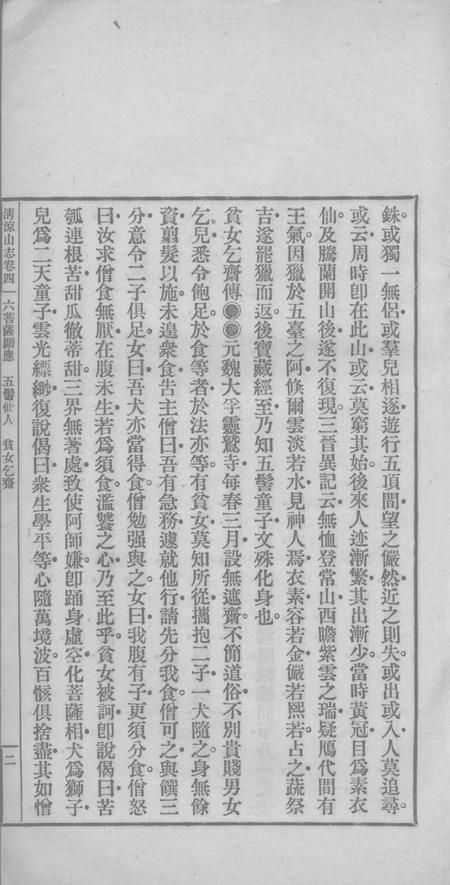 銖。或獨一無侶。或羣兒相逐。遊行五頂間。望之儼然。近之則失。或出或入。人莫追尋。
或云。周時卽在此山。或云。莫窮其始。後來人迹漸繁。其出漸少。當時黃冠目爲素衣
仙。及騰蘭開山後。遂不復現。三晉異記云。無恤登常山。西瞻紫雲之瑞。疑鴈代間有
王氣。因獵於五臺之阿。倏爾雲淡若水。見神人焉。衣素容若金。儼若熙若。占之蔬祭
吉。遂罷獵而返。後寶藏經至。乃知五髻童子。文殊化身也。
貧女乞齋傳●●元魏大孚靈鷲寺。每春三月。設無遮齋。不簡道俗。不別貴賤。男女
乞兒。悉令飽足。於食等者。於法亦等。有貧女莫知所從。攜抱二子。一犬隨之。身無餘
資。翦髮以施。未遑衆食。告主僧曰。吾有急務。遽就他行。請先分我食。僧可之。與饌三
分。意令二子俱足。女曰。吾犬亦當得食。僧勉强與之。女曰。我腹有子。更須分食。僧怒
曰。汝求僧食無厭。在腹未生。若爲須食。濫饕之心。乃至此乎。貧女被訶。卽說偈曰。苦
瓠連根苦。甜瓜徹蒂甜。三界無著處。致使阿師嫌。卽踊身虛空。化菩薩相。犬爲獅子。
兒爲二天童子。雲光縹緲。復說偈曰。衆生學平等。心隨萬境波。百骸俱捨盡。其如憎
清涼山志卷四 六菩薩顯應 五髻仙人 貧女乞齋 二